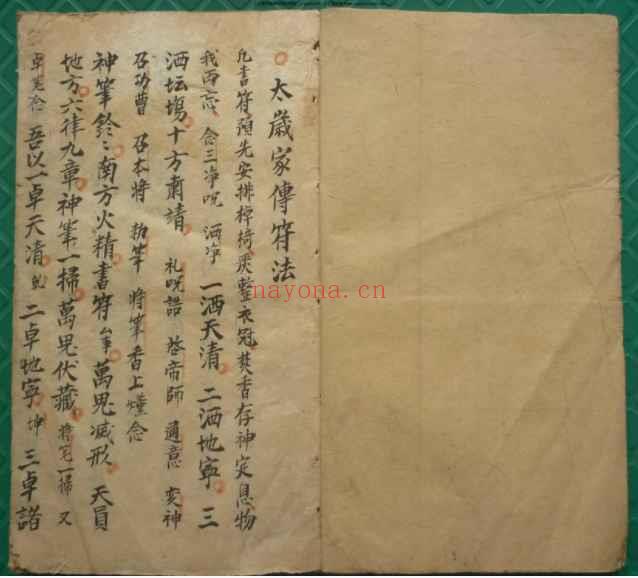 太歲家傳符法
凡書符預先安排棹椅炭整衣冠焚香存神定息物
我両忘 念三净呪 洒净 一洒天清 二洒地寧 三
洒坛塲十方肅請 礼呪語 啓帝師 通意 变神
召功曹 召本將 执筆 將筆香上燻念
神筆鈴〻南方火精書符 萬鬼滅形 天員
地方六律九章神筆一掃萬鬼伏藏 將笔一掃 又
卓 念 吾以一卓天清 乾 二卓地寧 坤 三卓諸
nayona.cn